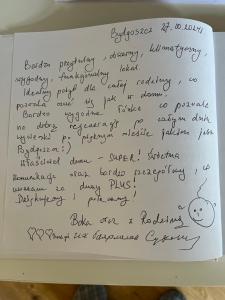 Bydgoszcz 27.10.2024r
Bardzo przytulny, domowy, klimatyczny,
wygodny, funkcjonalny lokal.
Idealny pobyt dla całej rodziny, co
pozwala czuć się jak w domu.
Bardzo wygodne łóżka co pozwala
na dobrą regenerację po całym dniu
wycieczki po pięknym mieście jakim jest
Bydgoszcz :)
Właściciel domu - SUPER! Świetna
komunikacja oraz bardzo szczegółowy, co
uważam za duży PLUS!
Dziękujemy i polecamy!
oraz z Rodziną